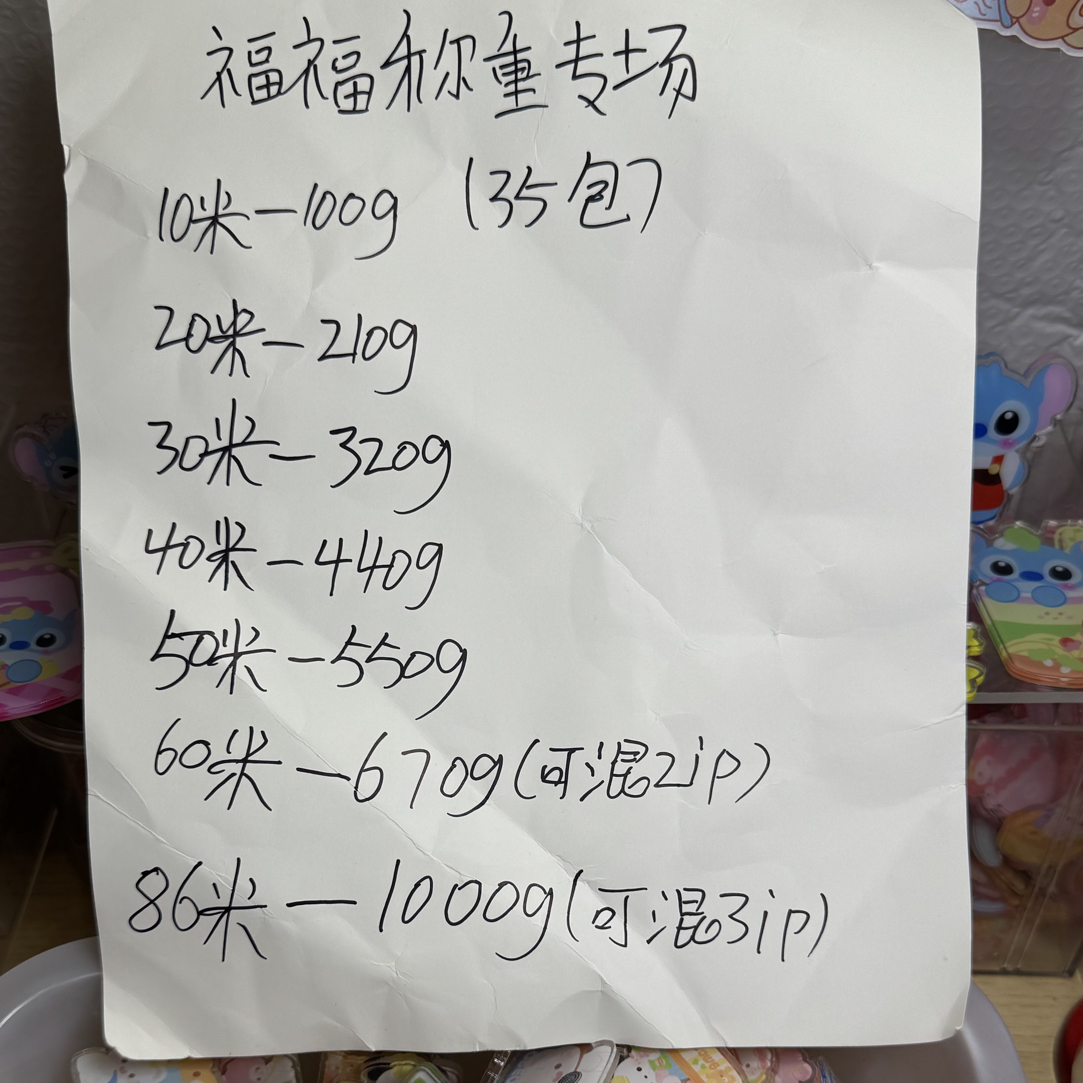 福福称重专场
10米—100g (35包)
20米—210g
30米—320g
40米—440g
50米—550g
60米—670g(可混2ip)
86米—1000g(可混3ip)